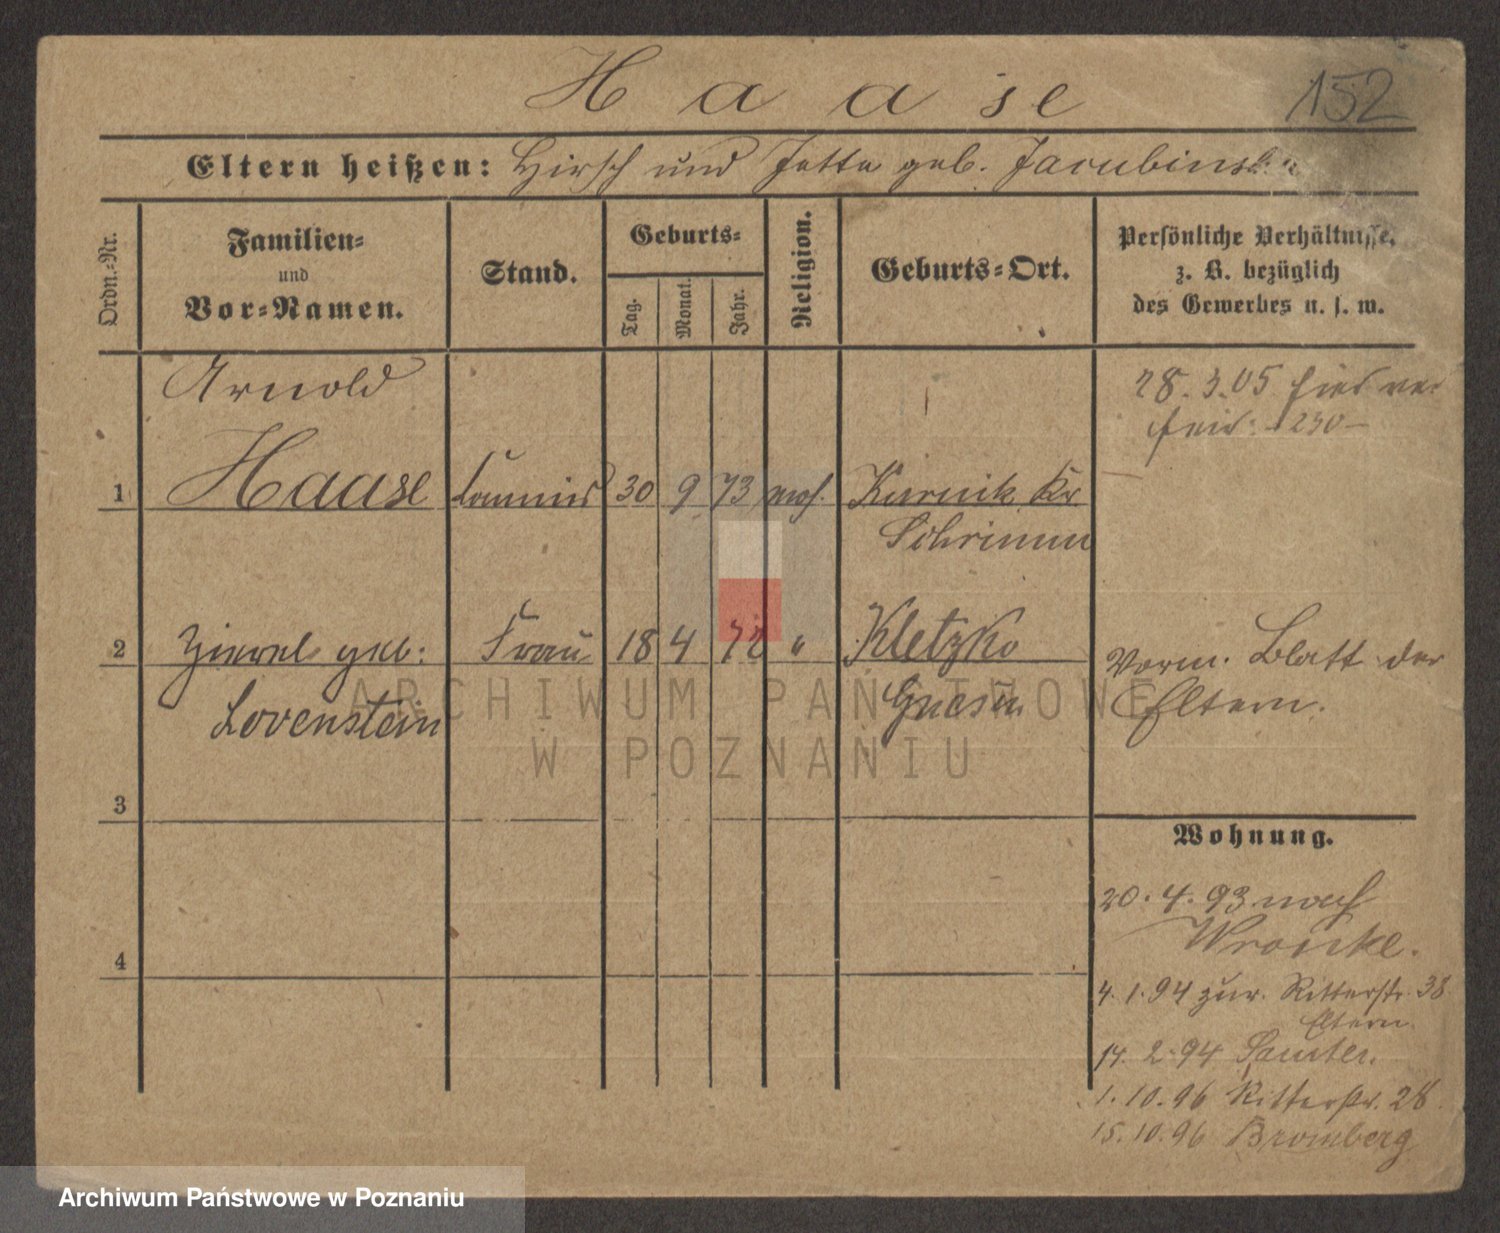 Haase
152
Eltern heißen: Hirsch und Jette geb. Jacubinska
Ordn.-Nr.
Familien-
und
Vor-Namen.
Stand.
Geburts-
Tag.
Monat.
Jahr.
Religion.
Geburts-Ort.
Persönliche Verhältnisse,
z. B. bezüglich
des Gewerbes u. s. w.
Arnold
28.3.05
230
1 Haase Commis 30 9 73 mos. Kurnik Kr
Schrimm
2 geb: Frau 18 4 72 " Kletzko
Lovenstein Gnesen
Vorm. Blatt der
Eltern.
3
4
Wohnung.
20.4.93 nach
Wronke.
4.1.94 zur. Ritterstr. 38
Eltern
14.2.94 Samter.
1.10.96 Ritterstr. 28
15.10.96 Bromberg
ARCHIWUM PAŃSTWOWE
W POZNANIU
Archiwum Państwowe w Poznaniu